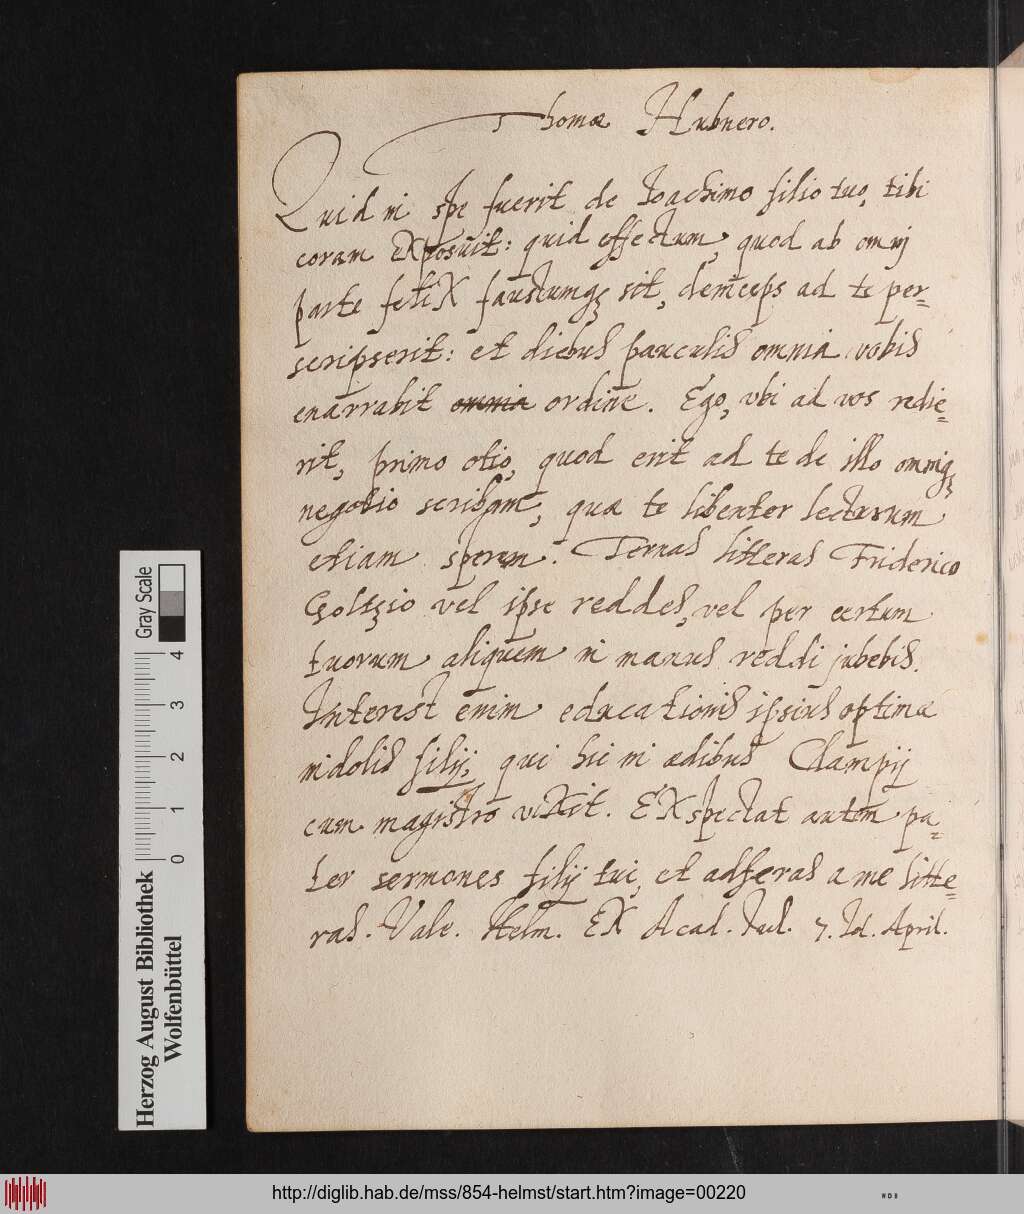 Thomæ Hubnero.
Quid in spe fuerit de Joachimo filio tuo, tibi
coram exposuit: quid effectum, quod ab omnj
parte felix faustumq; sit, deinceps ad te per=
scripserit: et diebus pauculis omnia vobis
enarrabit omnia ordine. Ego, vbi ad vos redie=
rit, primo otio, quod erit ad te de illo omniq;
negotio scribam, quæ te libenter lecturum
etiam sperem. Ternas litteras Friderico
Goltzio vel ipse reddes, vel per certum
tuorum aliquem in manus reddi jubebis.
Interest enim educationis ipsius optimæ
indolis filij, qui hic in ædibus Clampij
cum magistro vixit. Exspectat autem pa=
ter sermones filij tui, et adferas a me litte=
ras. Vale. Helm. Ex Acad. Jul. 7. Id. April.
Gray Scale
0 1 2 3 4
Herzog August Bibliothek
Wolfenbüttel
http://diglib.hab.de/mss/854-helmst/start.htm?image=00220